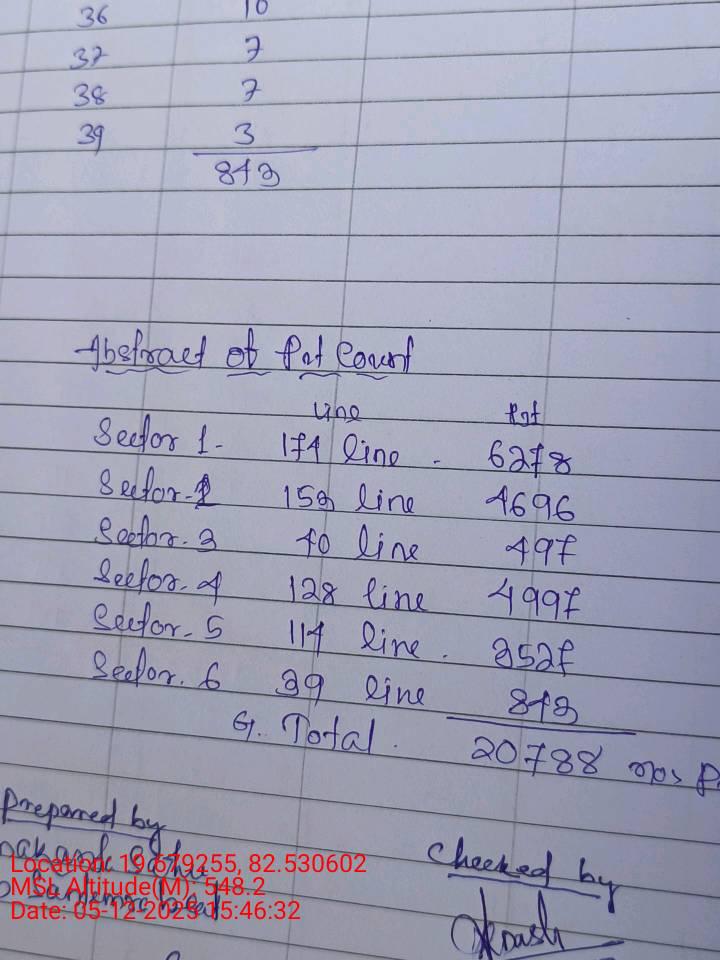 36 10
37 7
38 7
39 3
843
Abstract of Pit Count
Line Pit
Sector 1- 174 line - 6278
Sector-2 153 line 4696
Sector. 3 40 line 497
Sector. 4 128 line 4997
Sector- 5 114 line. 3527
Sector. 6 39 line 843
G. Total. 20788 nos P.
Prepared by
Checked by
Location: 19.679255, 82.530602
MSL Altitude(M): 548.2
Date: 05-12-2025 15:46:32